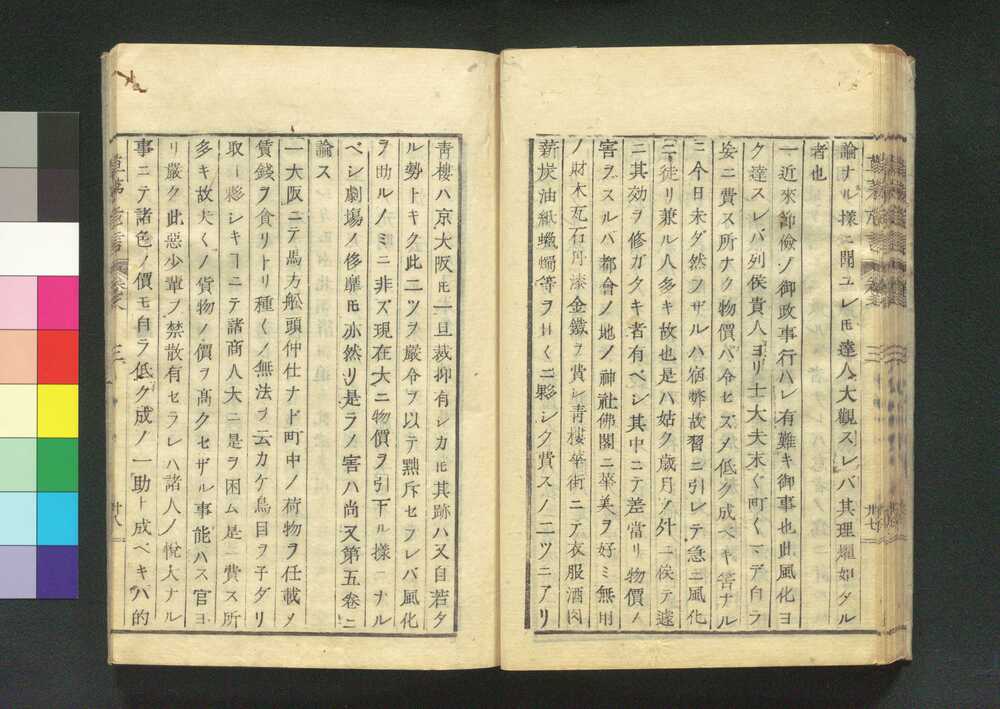 論ナル樣ニ聞ユレ𪜈達人大觀スレバ其理燿如タル
者也
一近來節儉ノ御政事行ハレ有難キ御事也此風化ヨ
ク達スレバ列侯貴人ヨリ士大夫末〻町〻マデ自ラ
妄ニ費ス所ナク物價ハ令セズ〆低ク成ベキ筈ナル
ニ今日未ダ然ラザルハ宿弊故習ニ引レテ急ニ風化
ニ徒リ兼ル人多キ故也是ハ姑ク歳月ノ外ニ俟テ遽
ニ其効ヲ修ガタキ者有ベシ其中ニテ差當リ物價ノ
害ヲスルバ都會ノ地ノ神社佛閣ニ華美ヲ好ミ無用
ノ財木瓦石丹漆金鐵ヲ費シ靑樓華街ニテ衣服酒肉
薪炭油紙蠟燭等ヲ日〻ニ夥シク費スノ二ツニアリ
靑樓ハ京大阪𪜈一旦裁抑有シカ𪜈其跡ハ又自若タ
ル勢トキク此二ツヲ嚴令ヲ以テ黜斥セラレバ風化
ヲ助ルノミニ非ズ現在大ニ物價ヲ引下ル樣ニナル
ベシ劇場ノ侈靡𪜈亦然リ是ラノ害ハ尚又第五卷ニ
論ス
一大阪ニテ馬方舩頭仲仕ナド町中ノ荷物ヲ任載〆
賃錢ヲ貪リトリ種〻ノ無法ヲ云カケ鳥目ヲ子ダリ
取ヿ夥シキヿニテ諸商人大ニ是ヲ困ム是ニ費ス所
多キ故夫〻ノ貨物ノ價ヲ髙クセザル事能ハス官ヨ
リ嚴ク此惡少輩ヲ禁散有セラレハ諸人ノ悅大ナル
事ニテ諸色ノ價モ自ラ低ク成ノ一助ト成ベキハ的
三
卅七
卅八